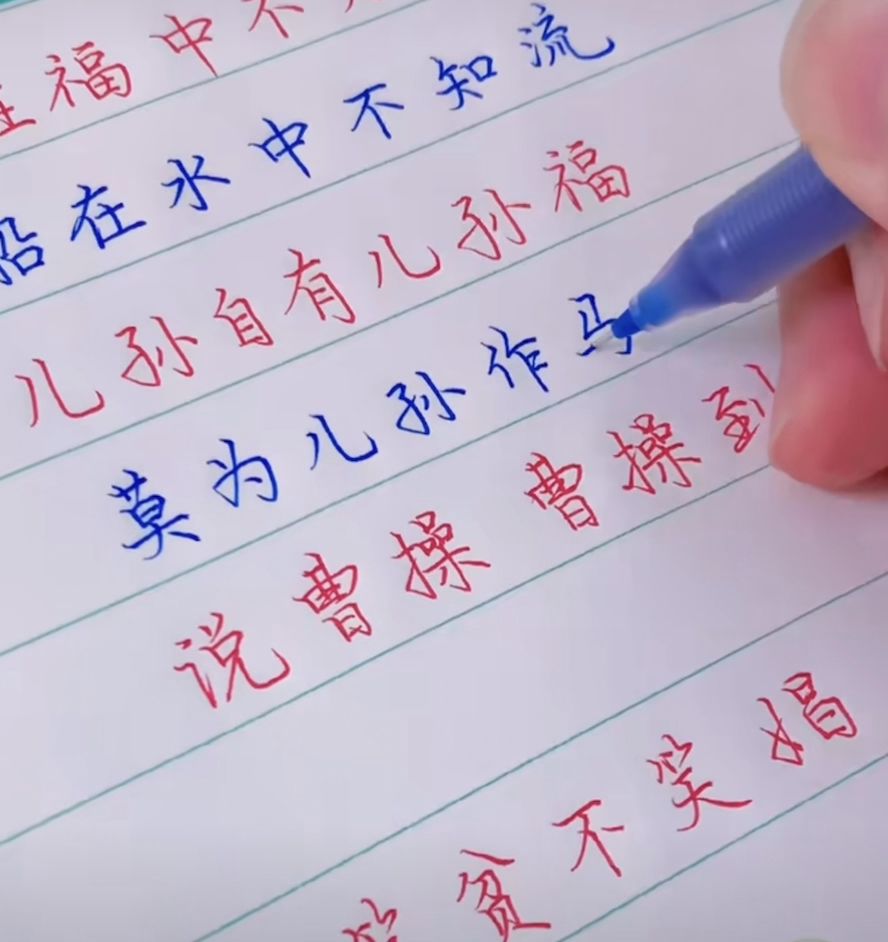 在福中不
船在水中不知流
儿孙自有儿孙福
莫为儿孙作马
说曹操 曹操到
笑贫不笑娼